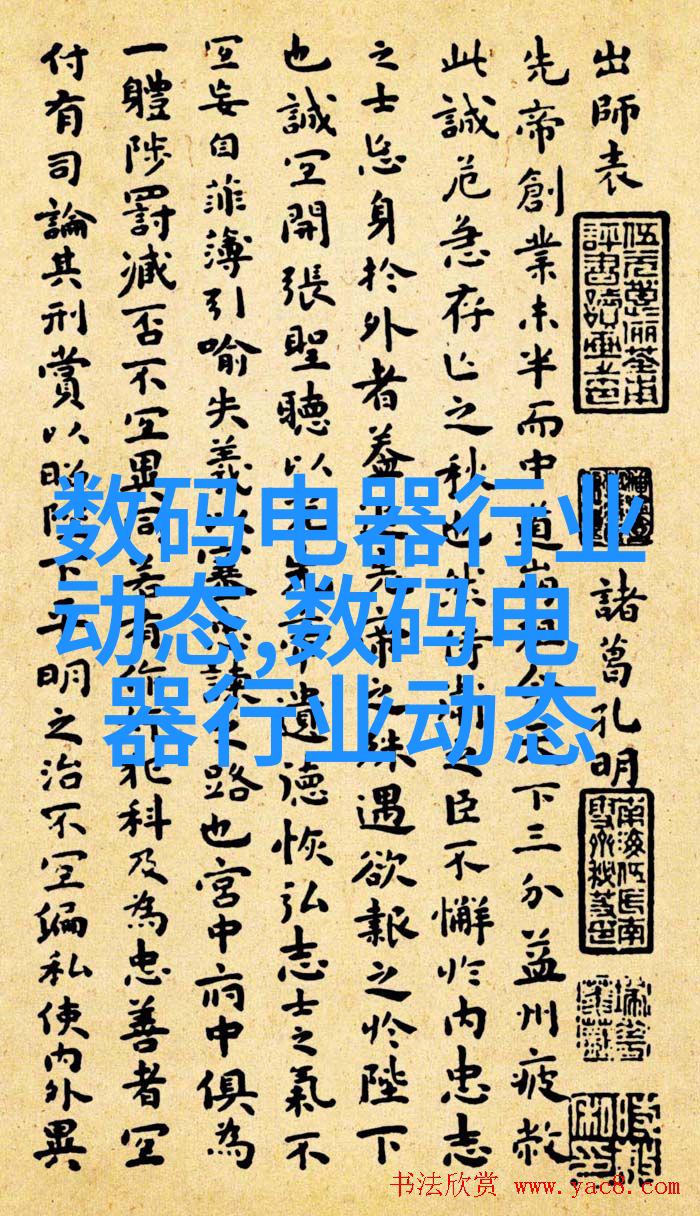 出師表 諸葛孔明
先帝創業未半而中道崩下三分益州疲敝
此誠危急存亡之秋也然侍衛之臣不懈於内忠志
之士忘身於外者蓋追先帝之殊遇欲報之於陛下
也誠宜開張聖聽以光先帝遺德恢弘志士之氣不
宜妄自菲薄引喻失義以塞忠諫之路也宮中府中俱為
一體陟罰臧否不宜異同若有作奸犯科及為忠善者宜
付有司論其刑賞以昭陛下平明之治不宜偏私使内外異
数码电器行业
动态,数码电
器行业动态
书法欣赏 www.yac8.com